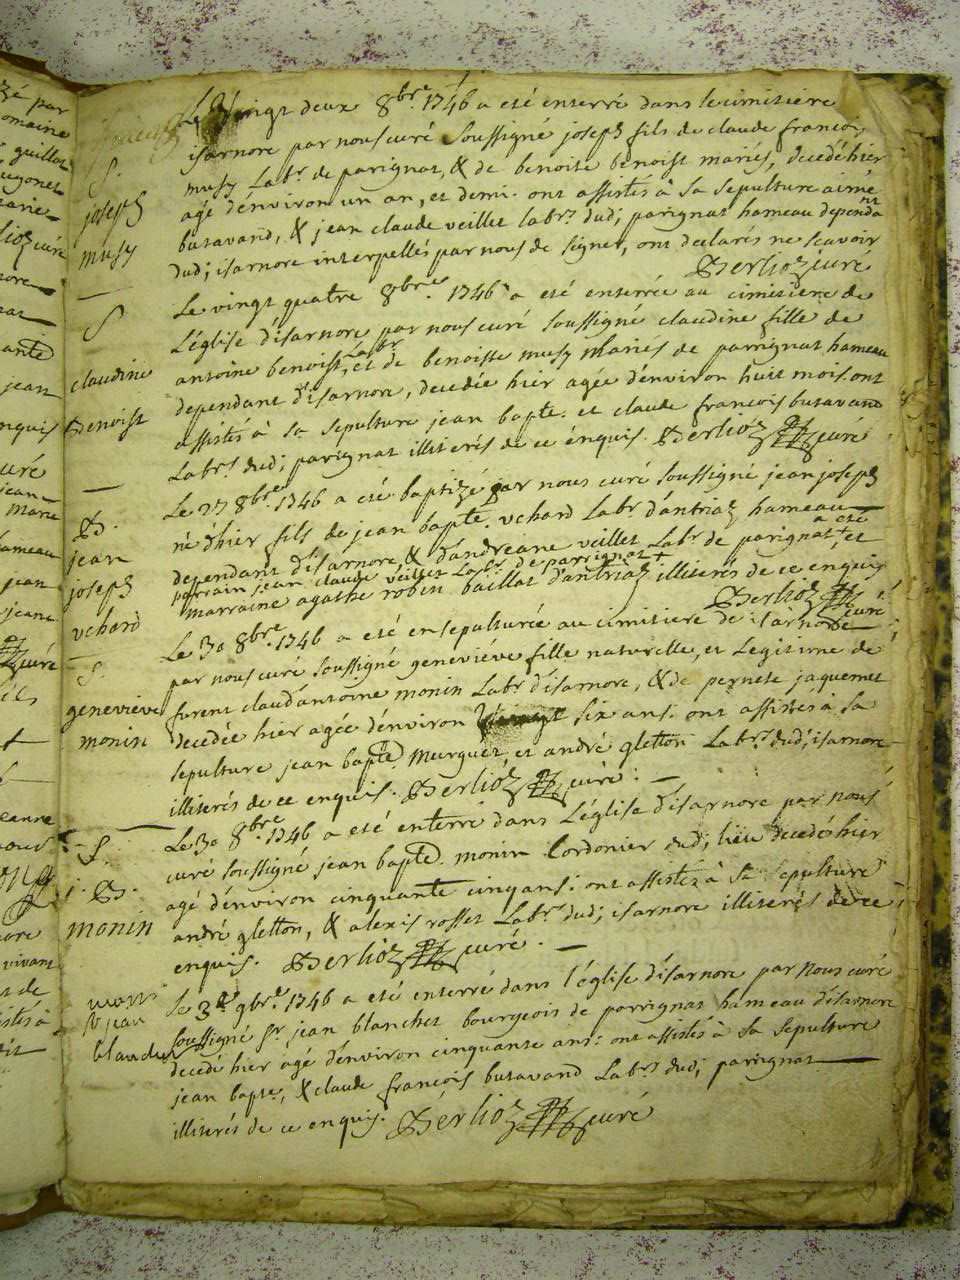 Le vingt deux 8bre 1746 a eté enterré dans le cimitiére
S.
disarnore par nous curé soussigné joseph fils de claude francois
joseph
musy Labr. de parignat, & de benoite benoist mariés, decedé hier
musy
agé d'environ un an, et demi. ont assistés à sa sepulture aimé
butavand, & jean claude veillet labrs dud; parignat hameau dependant
dud; isarnore interpellés par nous de signer, ont declarés ne scavoir
Berlioz curé
S
Le vingt quatre 8bre 1746 a eté enterrée au cimitiére de
L'église d'isarnore par nous curé soussigné claudine fille de
claudine
antoine benoist, Labr et de benoiste musy mariés de parrignat hameau
benoist
dependant d'isarnore, decedée hier agée d'environ huit mois. ont
assistés à sa sepulture jean bapte. et claude francois butavand
Labrs dud; parignat illiterés de ce énquis. Berlioz curé
B.
Le 27 8bre 1746 a eté baptizé par nous curé soussigné jean joseph
jean
né d'hier fils de jean bapte. vchard Labr d'antriaz hameau
joseph
dependant d'isarnore, & d'andreane veillet Labr de parignat + a eté et
vchard
parrain jean claude veillet Labr. de parrignat +
marraine agathe robin baillat d'antriaz illiterés de ce enquis
Berlioz curé
S.
Le 30 8bre 1746 a eté ensepulturée au cimitiere de isarnore
par nous curé soussigné geneviéve fille naturelle, et Légitime de
geneviéve
furent claud'antoine monin Labr d'isarnore, & de pernete jaquemet
monin
decedée hier agée d'environ vingt six ans. ont assistés à sa
sepulture jean bapte murguet, et andré gletton Labrs dud; isarnore
illiterés de ce enquis. Berlioz curé.
S.
Le 30 8bre 1746 a eté enterré dans L'église d'isarnore par nous
j. B.
curé soussigné jean bapte. monin Cordonier dud; lieu decedé hier
monin
agé d'environ cinquante cinq ans: ont assistés à sa sepulture
andré gletton, & alexis rosset Labrs dud; isarnore illiterés de ce
enquis. Berlioz curé.
Le 3e 9bre 1746 a eté enterré dans l'église d'isarnore par nous curé
Sr jean
soussigné sr jean blanchet bourgeois de parrignat hameau d'isarnore
decedé hier agé d'environ cinquante ans: ont assistés à sa sepulture
jean bapte, & claude francois butavand Labrs dud; parignat
illiterés de ce enquis. Berlioz curé